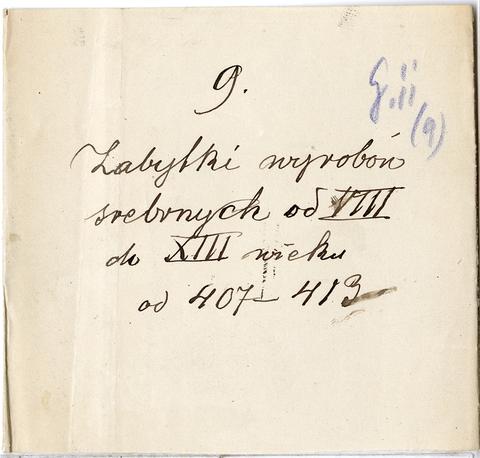 9.
G.ii
(9)
Zabytki wyrobów
srebrnych od VIII
do XIII wieku
od 407–413